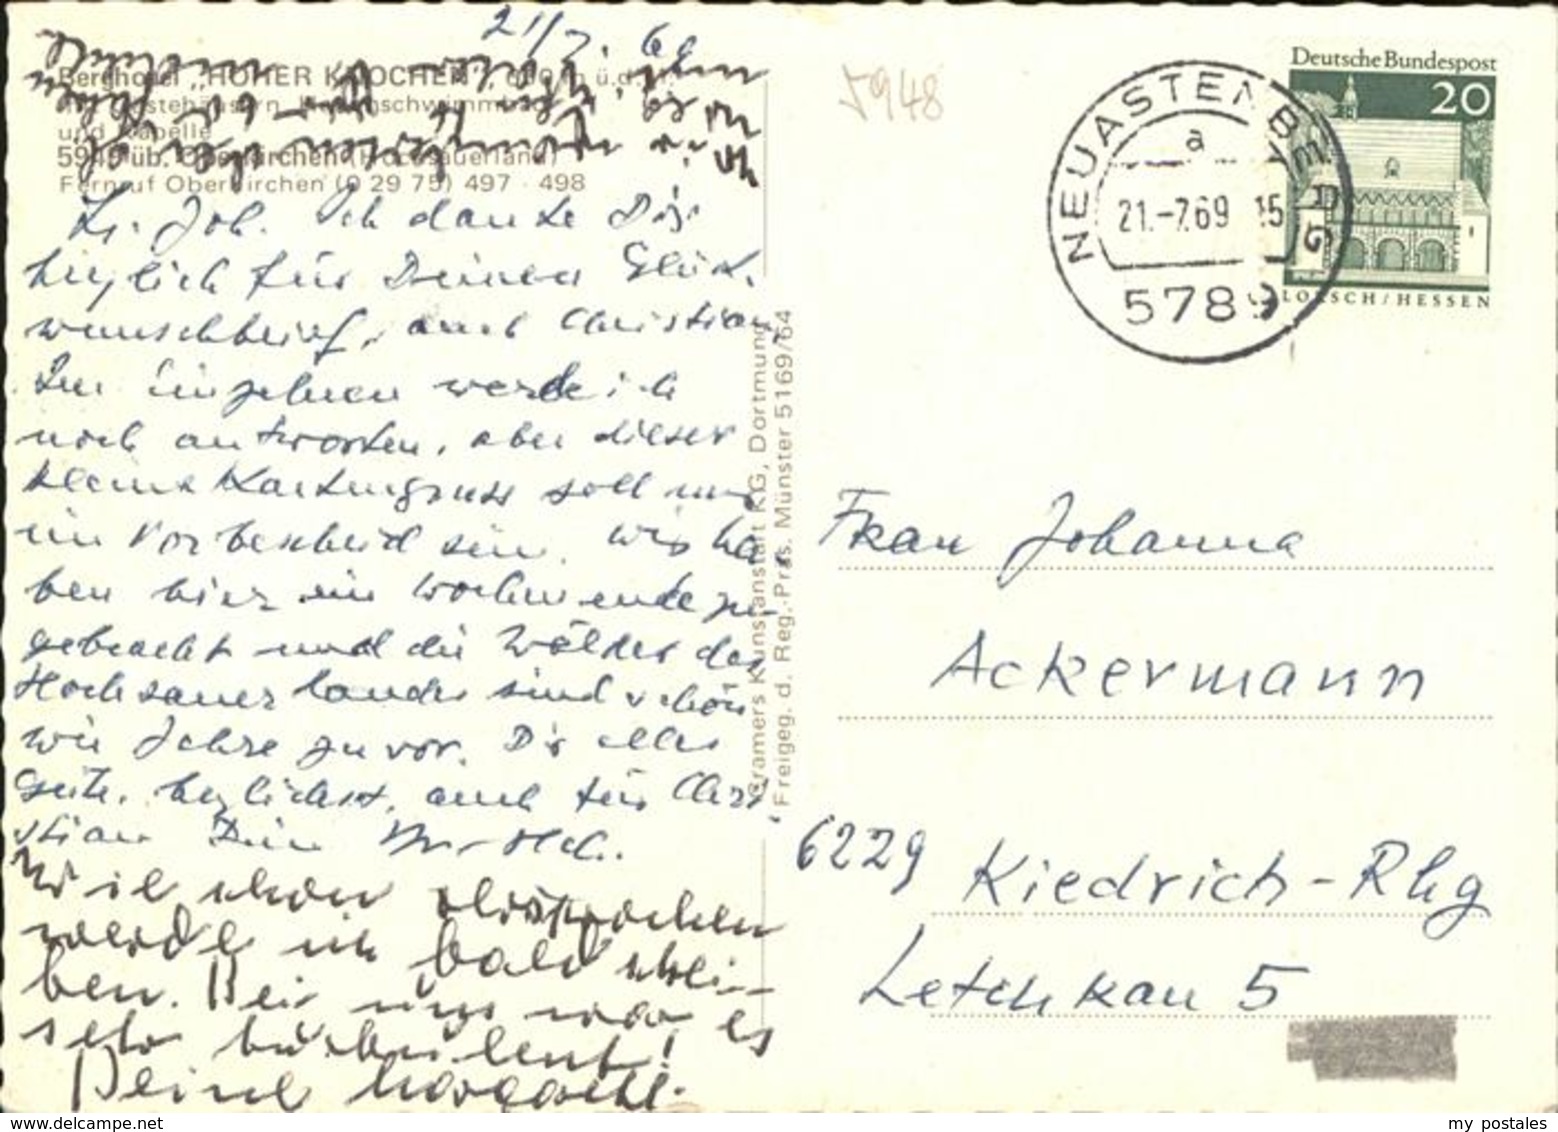 21/7. 69
Berghotel „HOHER KNOCHEN", 650 m ü.d.M.
Gästehäusern, Hallenschwimmbad
und Kapelle
5948 üb. Oberkirchen (Hochsauerland)
Fernruf Oberkirchen (0 29 75) 497 · 498
Joh. Ich danke Dir
herzlich für Deinen Glück-
wunschbrief, auch Christian.
Im Einzelnen werde ich
noch antworten, aber dieser
kleine Kartengruss soll nur
ein Vorbescheid sein. Wir ha-
ben hier ein Wochenende zu-
gebracht und die Wälder des
Hochsauerlandes sind schön
wie Jahre zuvor. Dir alles
Gute, herzlichst, auch für Chri-
stian Dein
Wie schon versprochen
werde ich bald schrei-
ben. Bei uns war es
sehr turbulent!
Deine Margarete.
Cramers Kunstanstalt KG, Dortmund
Freigeg. d. Reg.-Präs. Münster 5169/64
5948
NEUASTENBERG
a
21.-7.69 15
5789
Deutsche Bundespost
20
LORSCH/HESSEN
Frau Johanna
Ackermann
6229 Kiedrich-Rhg
5
my postales